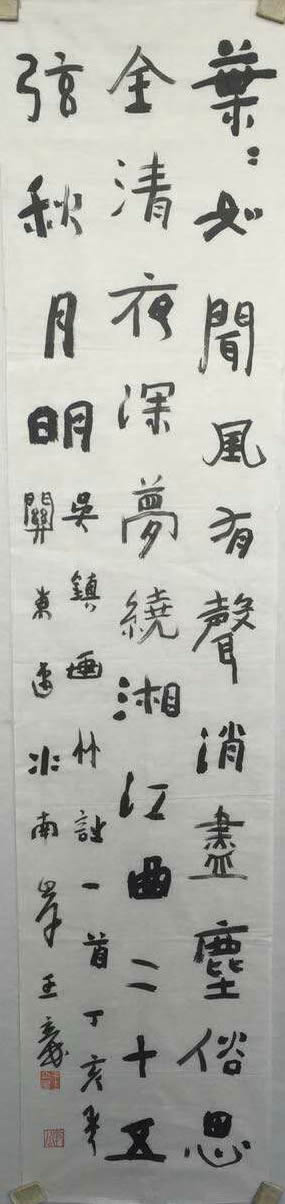 葉〻如聞風有聲消盡塵俗思
全清夜深夢繞湘江曲二十五
弦秋月明
吳鎮畫竹詩一首丁亥年
關東遼水南岸王